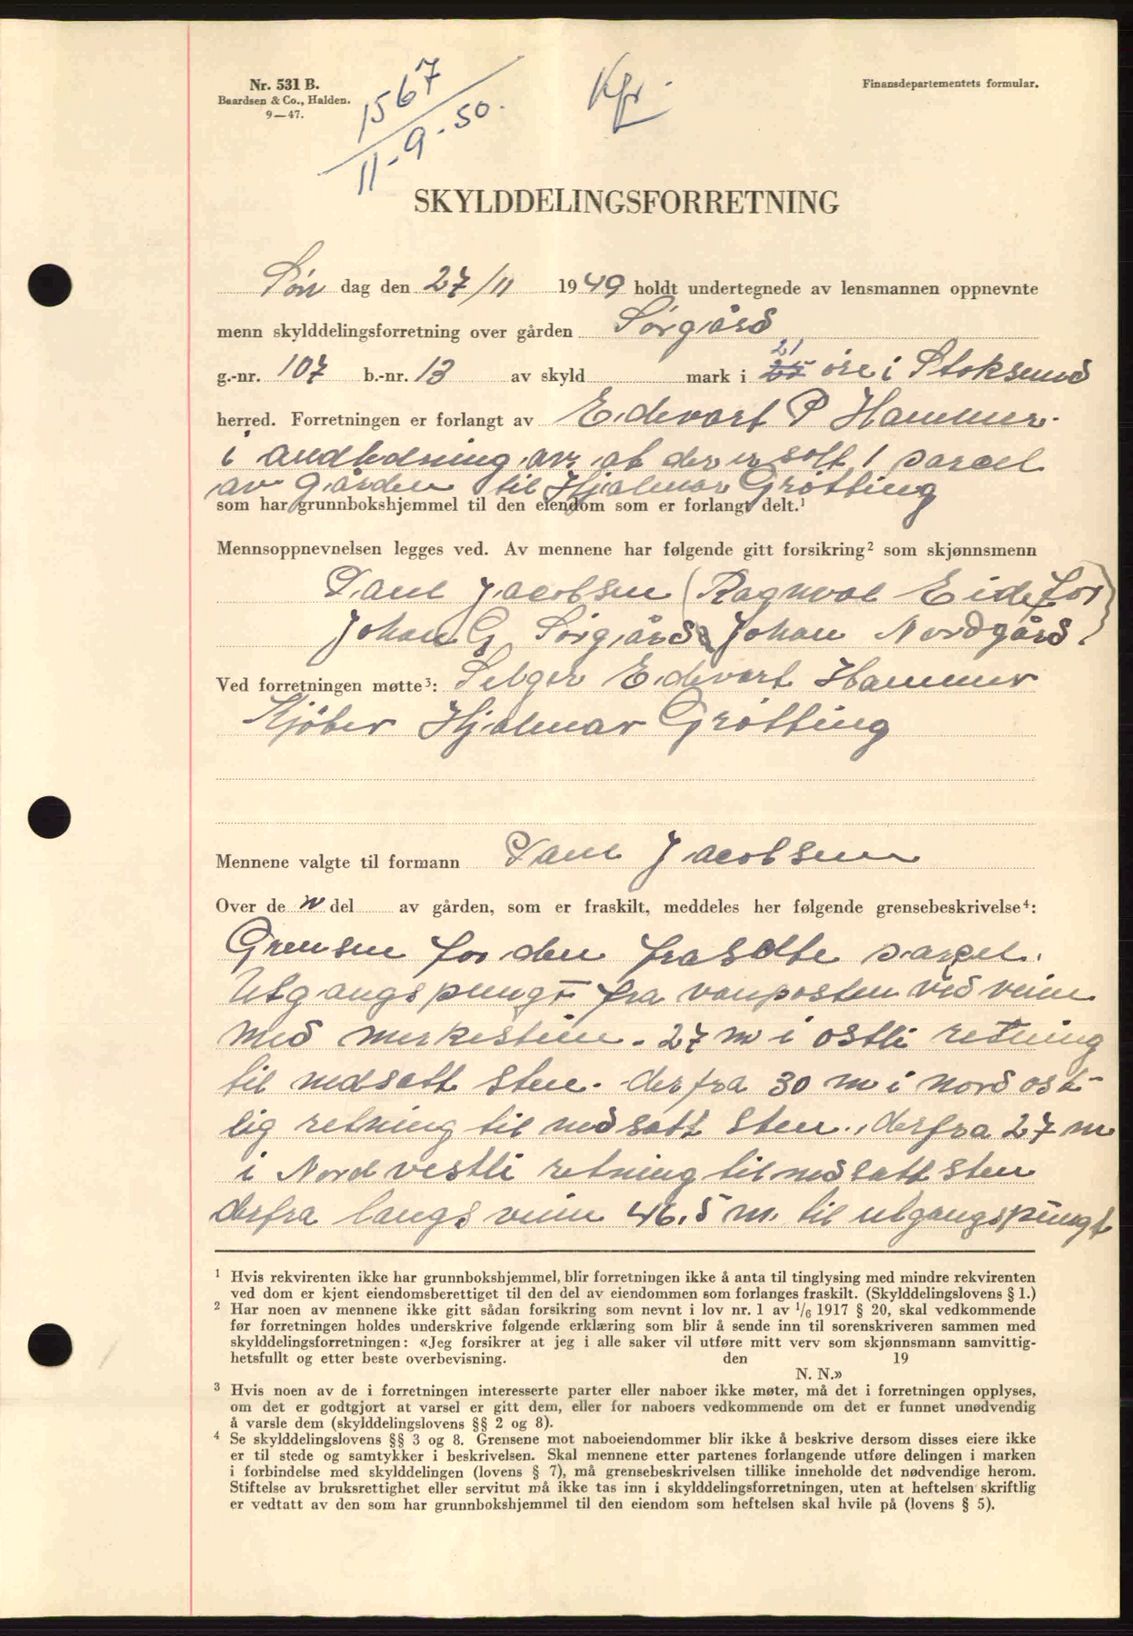 Nr. 531 B.
Baardsen & Co., Halden.
9—47.
1567
11-9-50.
Kfr.
Finansdepartementets formular.
SKYLDDELINGSFORRETNING
Søn dag den 27/11 1949 holdt undertegnede av lensmannen oppnevnte
menn skylddelingsforretning over gården Sørgård
21
g.-nr. 107 b.-nr. 13 av skyld mark i øre i Stoksund
herred. Forretningen er forlangt av Edevart P Hammer.
i andledning av at der er solt 1 parcel
av gården til Hjalmar Grøtting
som har grunnbokshjemmel til den eiendom som er forlangt delt.¹
Mennsoppnevnelsen legges ved. Av mennene har følgende gitt forsikring² som skjønnsmenn
Paul Jacobsen (Ragnval Eide for
Johan G. Sørgård) Johan Nordgård.
Ved forretningen møtte³: Selger Edevart Hammer
Kjøber Hjalmar Grøtting
Mennene valgte til formann Paul Jacobsen
Over de n del av gården, som er fraskilt, meddeles her følgende grensebeskrivelse⁴:
Grensen for den frasolte parcel.
Utgangspungt fra vonposten ved veien
med merkestein. 27 m i østli retning
til nedsatt sten. derfra 30 m i nordøst-
lig retning til nedsatt sten., derfra 27 m
i Nordvestli retning til nedsatt sten
derfra langs veien 46.5 m. til utgangspungt
¹ Hvis rekvirenten ikke har grunnbokshjemmel, blir forretningen ikke å anta til tinglysing med mindre rekvirenten
ved dom er kjent eiendomsberettiget til den del av eiendommen som forlanges fraskilt. (Skylddelingslovens § 1.)
² Har noen av mennene ikke gitt sådan forsikring som nevnt i lov nr. 1 av 1/6 1917 § 20, skal vedkommende
før forretningen holdes underskrive følgende erklæring som blir å sende inn til sorenskriveren sammen med
skylddelingsforretningen: «Jeg forsikrer at jeg i alle saker vil utføre mitt verv som skjønnsmann samvittig-
hetsfullt og etter beste overbevisning. den 19
N. N.»
³ Hvis noen av de i forretningen interesserte parter eller naboer ikke møter, må det i forretningen opplyses,
om det er godtgjort at varsel er gitt dem, eller for naboers vedkommende om det er funnet unødvendig
å varsle dem (skylddelingslovens §§ 2 og 8).
⁴ Se skylddelingslovens §§ 3 og 8. Grensene mot naboeiendommer blir ikke å beskrive dersom disses eiere ikke
er til stede og samtykker i beskrivelsen. Skal mennene etter partenes forlangende utføre delingen i marken
i forbindelse med skylddelingen (lovens § 7), må grensebeskrivelsen tillike inneholde det nødvendige herom.
Stiftelse av bruksrettighet eller servitut må ikke tas inn i skylddelingsforretningen, uten at heftelsen skriftlig
er vedtatt av den som har grunnbokshjemmel til den eiendom som heftelsen skal hvile på (lovens § 5).